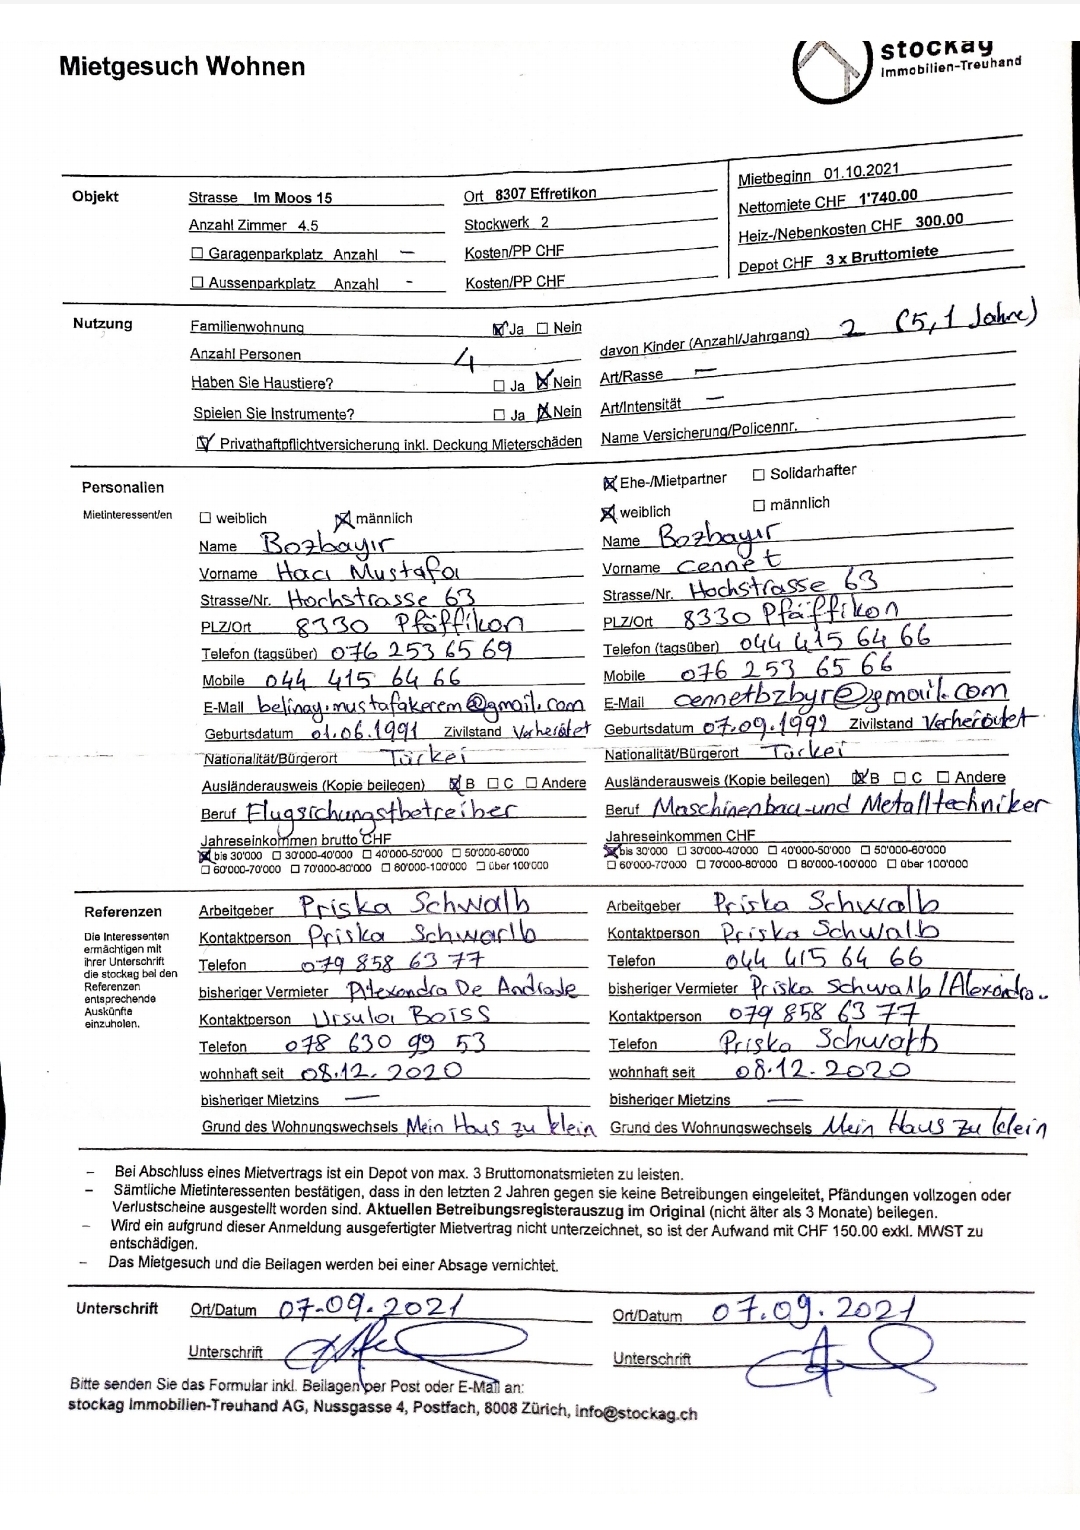 stockag
Immobilien-Treuhand
Mietgesuch Wohnen
Objekt
Strasse Im Moos 15
Ort 8307 Effretikon
Mietbeginn 01.10.2021
Anzahl Zimmer 4.5
Stockwerk 2
Nettomiete CHF 1'740.00
☐ Garagenparkplatz Anzahl –
Kosten/PP CHF
Heiz-/Nebenkosten CHF 300.00
☐ Aussenparkplatz Anzahl -
Kosten/PP CHF
Depot CHF 3 x Bruttomiete
Nutzung
Familienwohnung ☒ Ja ☐ Nein
Anzahl Personen 4
davon Kinder (Anzahl/Jahrgang) 2 (5,1 Jahre)
Haben Sie Haustiere? ☐ Ja ☒ Nein
Art/Rasse —
Spielen Sie Instrumente? ☐ Ja ☒ Nein
Art/Intensität —
☒ Privathaftpflichtversicherung inkl. Deckung Mieterschäden
Name Versicherung/Policennr.
Personalien
Mietinteressent/en
☐ weiblich ☒ männlich
Name Bozbayır
Vorname Hacı Mustafa
Strasse/Nr. Hochstrasse 63
PLZ/Ort 8330 Pfäffikon
Telefon (tagsüber) 076 253 65 69
Mobile 044 415 64 66
E-Mail belinay.mustafakerem@gmail.com
Geburtsdatum 01.06.1991 Zivilstand Verheirötet
Nationalität/Bürgerort Türkei
Ausländerausweis (Kopie beilegen) ☒ B ☐ C ☐ Andere
Beruf Flugsichungstbetreiber
Jahreseinkommen brutto CHF
☒ bis 30'000 ☐ 30'000-40'000 ☐ 40'000-50'000 ☐ 50'000-60'000
☐ 60'000-70'000 ☐ 70'000-80'000 ☐ 80'000-100'000 ☐ über 100'000
☒ Ehe-/Mietpartner ☐ Solidarhafter
☒ weiblich ☐ männlich
Name Bozbayır
Vorname Cennet
Strasse/Nr. Hochstrasse 63
PLZ/Ort 8330 Pfäffikon
Telefon (tagsüber) 044 415 64 66
Mobile 076 253 65 66
E-Mail cennetbzbyr@gmail.com
Geburtsdatum 07.09.1992 Zivilstand Verheirötet
Nationalität/Bürgerort Türkei
Ausländerausweis (Kopie beilegen) ☒ B ☐ C ☐ Andere
Beruf Maschinenbau-und Metalltechniker
Jahreseinkommen CHF
☒ bis 30'000 ☐ 30'000-40'000 ☐ 40'000-50'000 ☐ 50'000-60'000
☐ 60'000-70'000 ☐ 70'000-80'000 ☐ 80'000-100'000 ☐ über 100'000
Referenzen
Die Interessenten
ermächtigen mit
ihrer Unterschrift
die stockag bei den
Referenzen
entsprechende
Auskünfte
einzuholen.
Arbeitgeber Priska Schwalb
Kontaktperson Priska Schwarlb
Telefon 079 858 63 77
bisheriger Vermieter Alexandra De Andrade
Kontaktperson Ursula Boiss
Telefon 078 630 99 53
wohnhaft seit 08.12.2020
bisheriger Mietzins —
Grund des Wohnungswechsels Mein Haus zu klein
Arbeitgeber Priska Schwalb
Kontaktperson Priska Schwalb
Telefon 044 415 64 66
bisheriger Vermieter Priska Schwalb/Alexandra..
Kontaktperson 079 858 63 77
Telefon Priska Schwalb
wohnhaft seit 08.12.2020
bisheriger Mietzins —
Grund des Wohnungswechsels Mein Haus zu klein
– Bei Abschluss eines Mietvertrags ist ein Depot von max. 3 Bruttomonatsmieten zu leisten.
– Sämtliche Mietinteressenten bestätigen, dass in den letzten 2 Jahren gegen sie keine Betreibungen eingeleitet, Pfändungen vollzogen oder
Verlustscheine ausgestellt worden sind. Aktuellen Betreibungsregisterauszug im Original (nicht älter als 3 Monate) beilegen.
– Wird ein aufgrund dieser Anmeldung ausgefertigter Mietvertrag nicht unterzeichnet, so ist der Aufwand mit CHF 150.00 exkl. MWST zu
entschädigen.
– Das Mietgesuch und die Beilagen werden bei einer Absage vernichtet.
Unterschrift
Ort/Datum 07-09.2021
Ort/Datum 07.09.2021
Unterschrift
Unterschrift
Bitte senden Sie das Formular inkl. Beilagen per Post oder E-Mail an:
stockag Immobilien-Treuhand AG, Nussgasse 4, Postfach, 8008 Zürich, info@stockag.ch